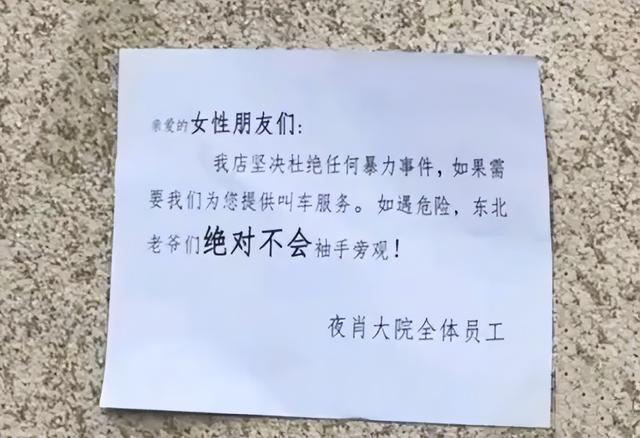 亲爱的女性朋友们:
我店坚决杜绝任何暴力事件，如果需
要我们为您提供叫车服务。如遇危险，东北
老爷们绝对不会袖手旁观！
夜肖大院全体员工